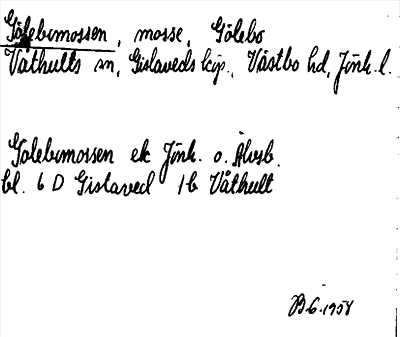 Gölebomossen, mosse, Gölebo
Våthults sn, Gislaveds kp., Västbo hd, Jönk. l.
Golebomossen ek Jönk. o. Älvsb.
bl. 6 D Gislaved 1b Våthult
B 6. 1958